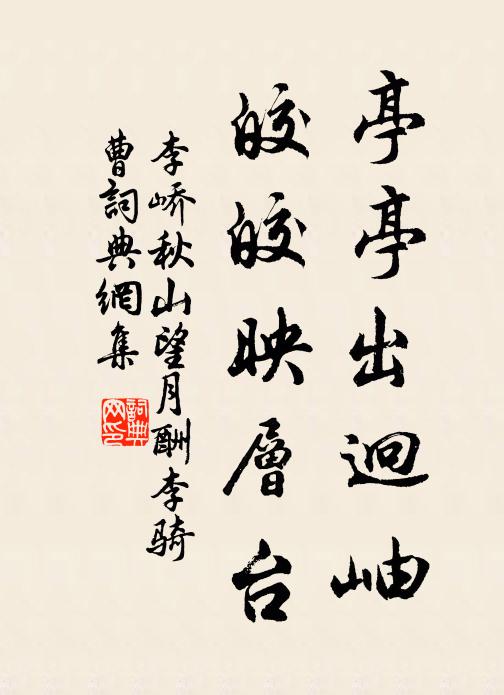 亭亭出迥岫
皎皎映層台
李嶠秋山望月酬李骑
曹詞典網集
詞典网印